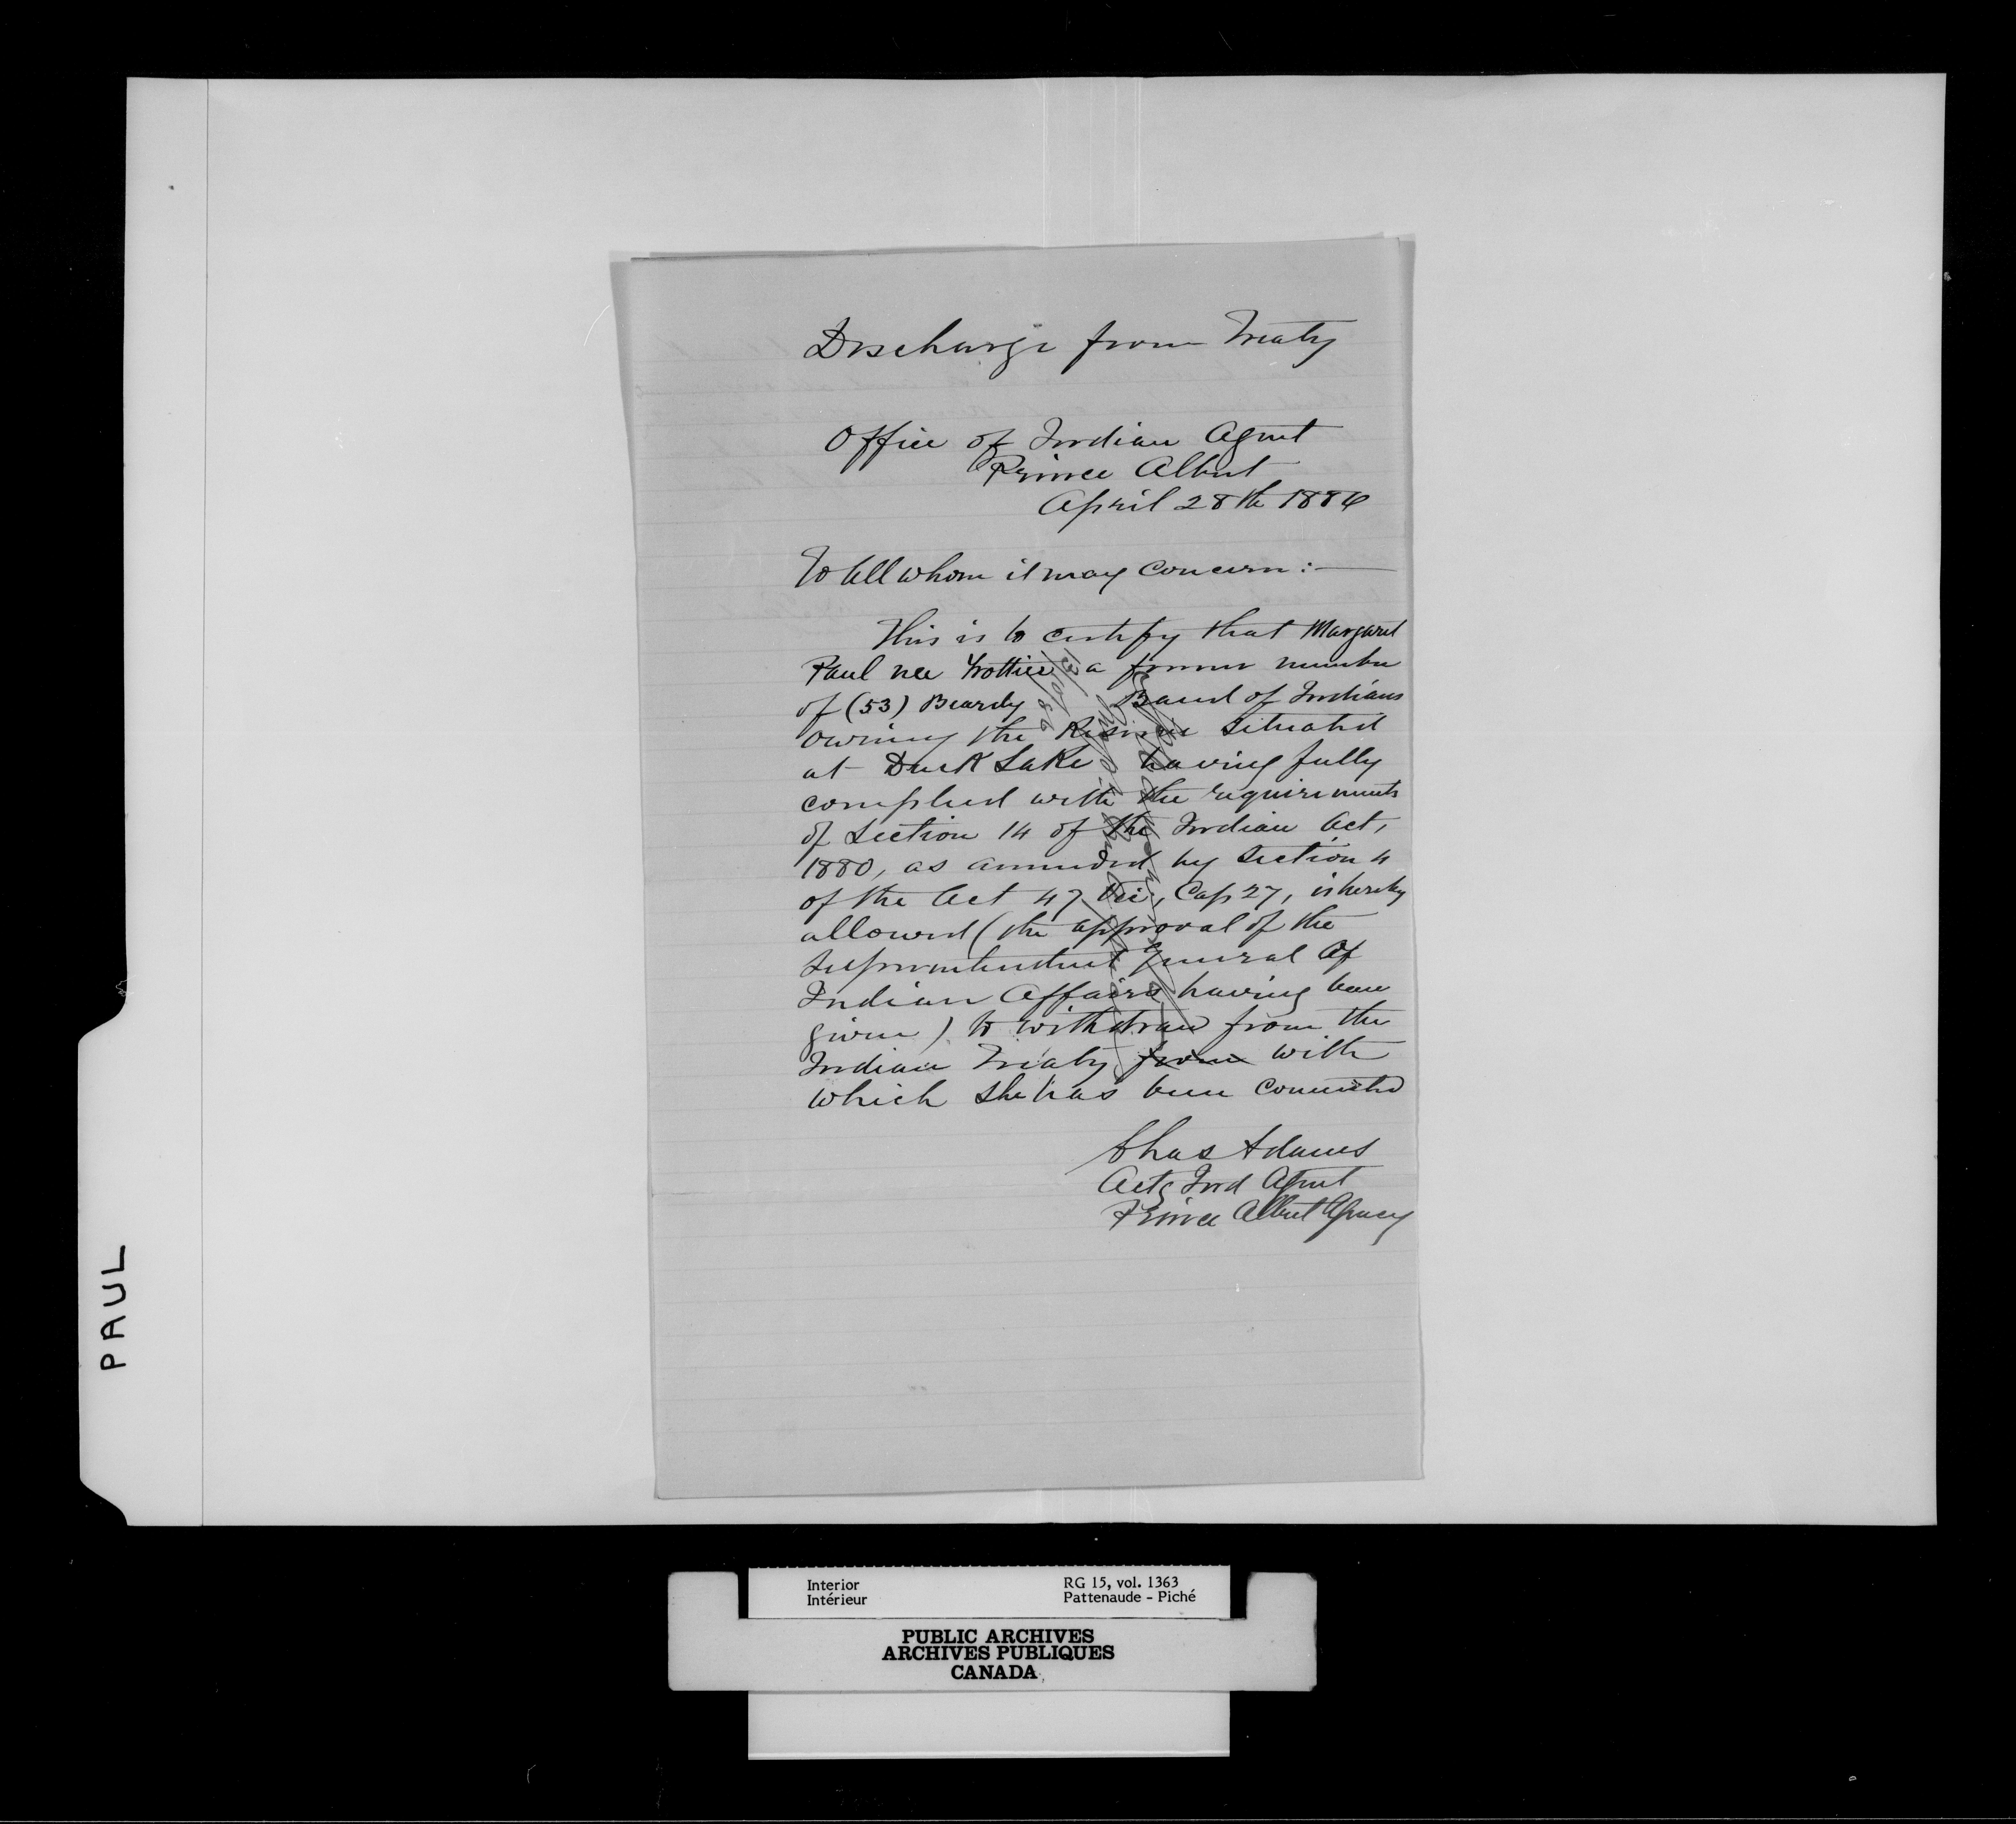 Discharge from Treaty
Office of Indian Agent
Prince Albert
April 28th 1886
To All whom it may Concern:—
This is to certify that Margaret
Paul nee Trottier a former member
of (53) Beardy Band of Indians
owning the Reserve situated
at Duck Lake having fully
complied with the requirements
of Section 14 of the Indian Act,
1880, as amended by Section 4
of the Act 47 Vic, Cap 27, is hereby
allowed (the approval of the
Superintendent General of
Indian Affairs having been
given) to withdraw from the
Indian Treaty from with
which she has been connected
Chas Adams
Actg Ind Agent
Prince Albert Agency
PAUL
Interior
Intérieur
RG 15, vol. 1363
Pattenaude - Piché
PUBLIC ARCHIVES
ARCHIVES PUBLIQUES
CANADA